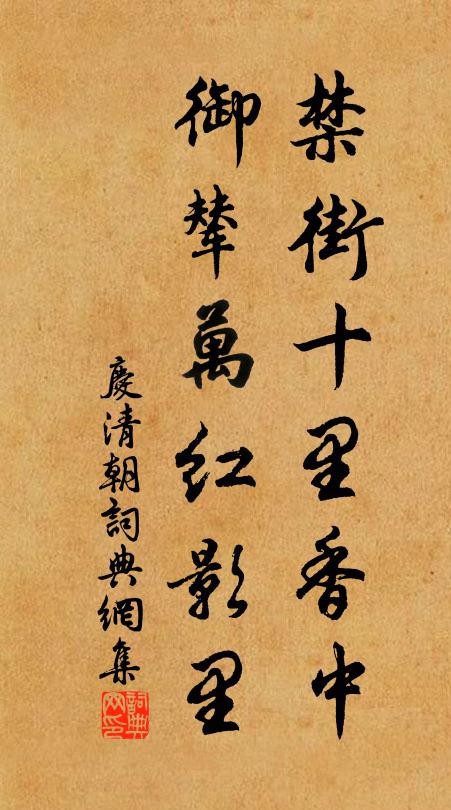 禁街十里香中
御輦萬紅影里
慶清朝詞典網集
詞典網印